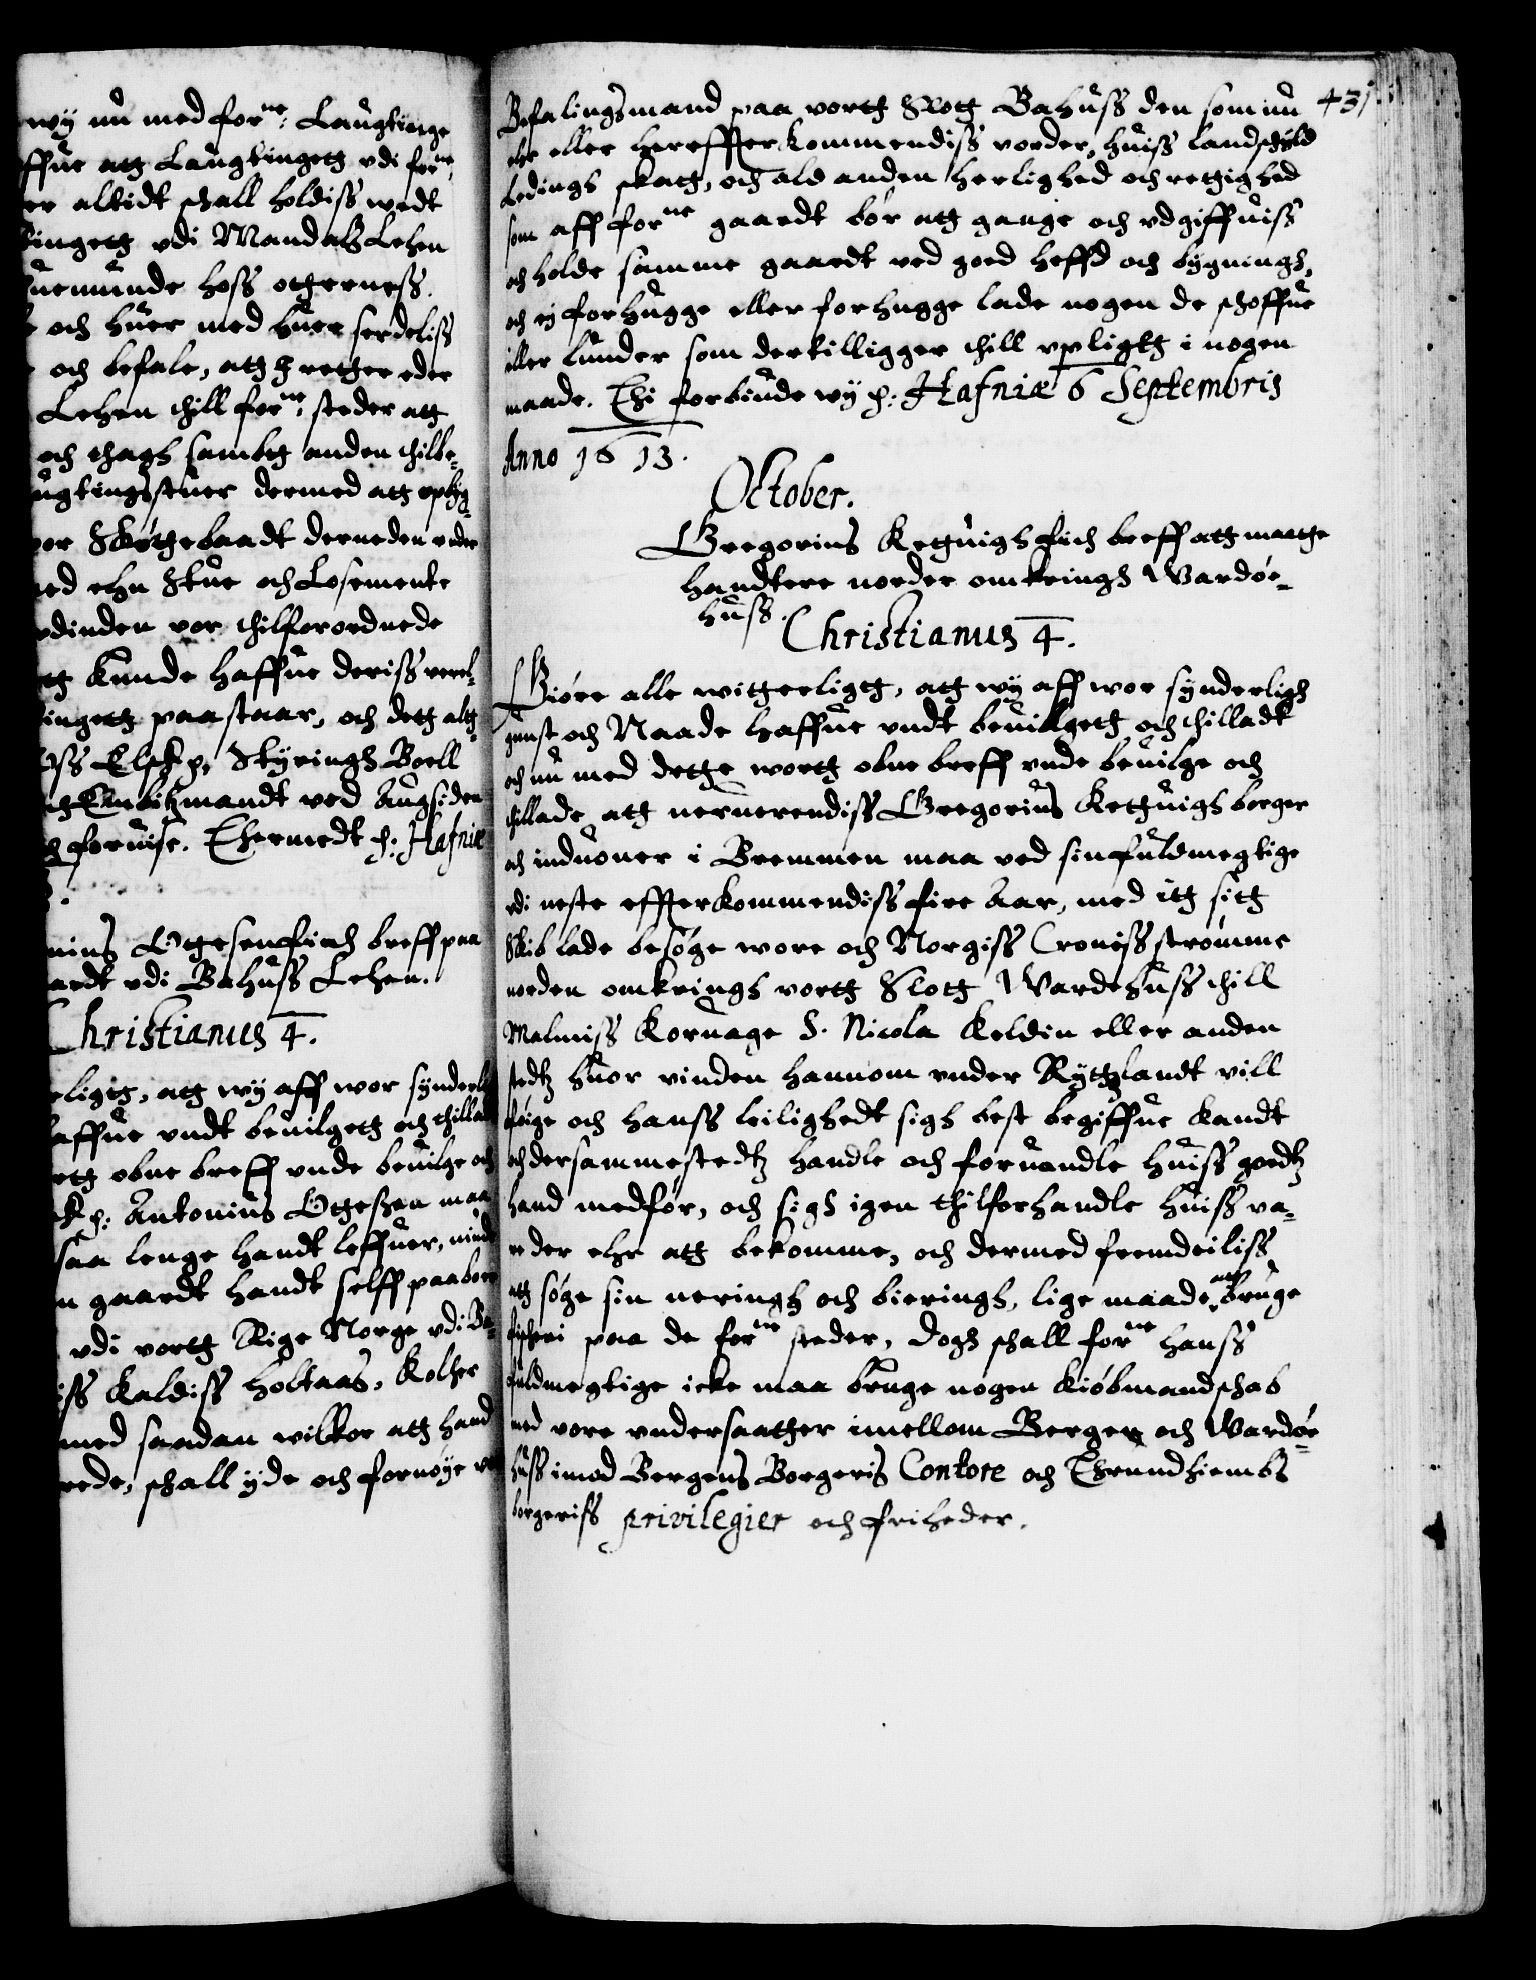 wy nu med forne: Laugtinge
ffue att Laugtingett vdi forne:
er altidt schall holdiss wedt
tingett vdi Mandals Lehen
nemunde hoss otherness.
och huer med huer serdeliss
och befale, att I retther eder
Lehen thill forne: steder att
och thagh sambtt anden thilbe-
ugtingsstuer dermed att opbyg-
vor Skøthebaadt derneden vnder
ed ehn Stue och Losemente
vdinden vor thilforordnede
tt kunde haffue deriss verel-
tingett paastaar, och dett altt
ss Elsk. p. Styringh Boell
Embitzmandt ved Augsiden
foruise. Thermedt p: Hafniæ
nius Ottesen fich breff paa
ardt vdi Bahuss Lehen.
Christianus 4.
eligt, att wy aff wor synderli
affue vndt beuilgett och thillad
tt obne breff vnde beuilge och
k p: Antonius Otteszen maa
saa lenge handt leffuer, niude
n gaardt handt selff paaboer
vdi vortt Rige Norge vdi Ba-
iss kaldiss Holtaas, Kolher
med saadan wilkor att hand
rede, schall yde och fornøye vor
431.
Befalingsmand paa vortt Slott Bahuss den som nu
ehr eller hereffter kommendiss vorder, huiss landschyld
Ledings skatt, och ald anden herlighed och rettighed
som aff forne gaardt bør att gange och vdgiffuiss
och holde samme gaardt ved goed heffd och bygningh,
och ej forhugge eller forhugge lade nogen de schoffue
eller lunder som dertilligger thill vpligtt i nogen
maade. Thi forbiude wy p: Hafniæ 6 Septembris
Anno 1613.
October.
Gregorius Kettuigh fich breff att maatte
handtere norder omkringh Wardøe-
huss.
Christianus 4.
Giøre alle witterligtt, att wy aff wor synderligh
gunst och Naade haffue vndt beuillgett och thilladt
och nu med dette wortt obne breff vnde beuilge och
thillade att neruerendiss Gregorius Kettuigh borger
och induoner i Bremmen maa ved sin fuldmegtige
vdi neste effterkommendiss fire Aar, med itt sitt
Skib lade besøge wore och Norgiss Croniss strømme
norden omkringh vortt Slott Wardehuss thill
Malmiss Kornage S. Nicola Keldin eller anden
stedtz huor vinden hannom vnder Rytzlandt vill
føige och hanss leilighedt sigh best begiffue kandt
och dersammestedtz handle och foruandle huiss goedtz
hand medfør, och sigh igen thilforhandle huiss va-
reder ehr att bekomme, och dermed fremdeliss
att søge sin neringh och bieringh, lige maade att bruge
fischeri paa de forne steder, Dogh schall forne hanss
fuldmegtige icke maa bruge nogen kiøbmandschab
med vore vndersaatther imellom Bergen och Wardøe-
huss imod Bergens Borgeris Contore och Thrundhiembs
borgeriss privilegier och friheder.